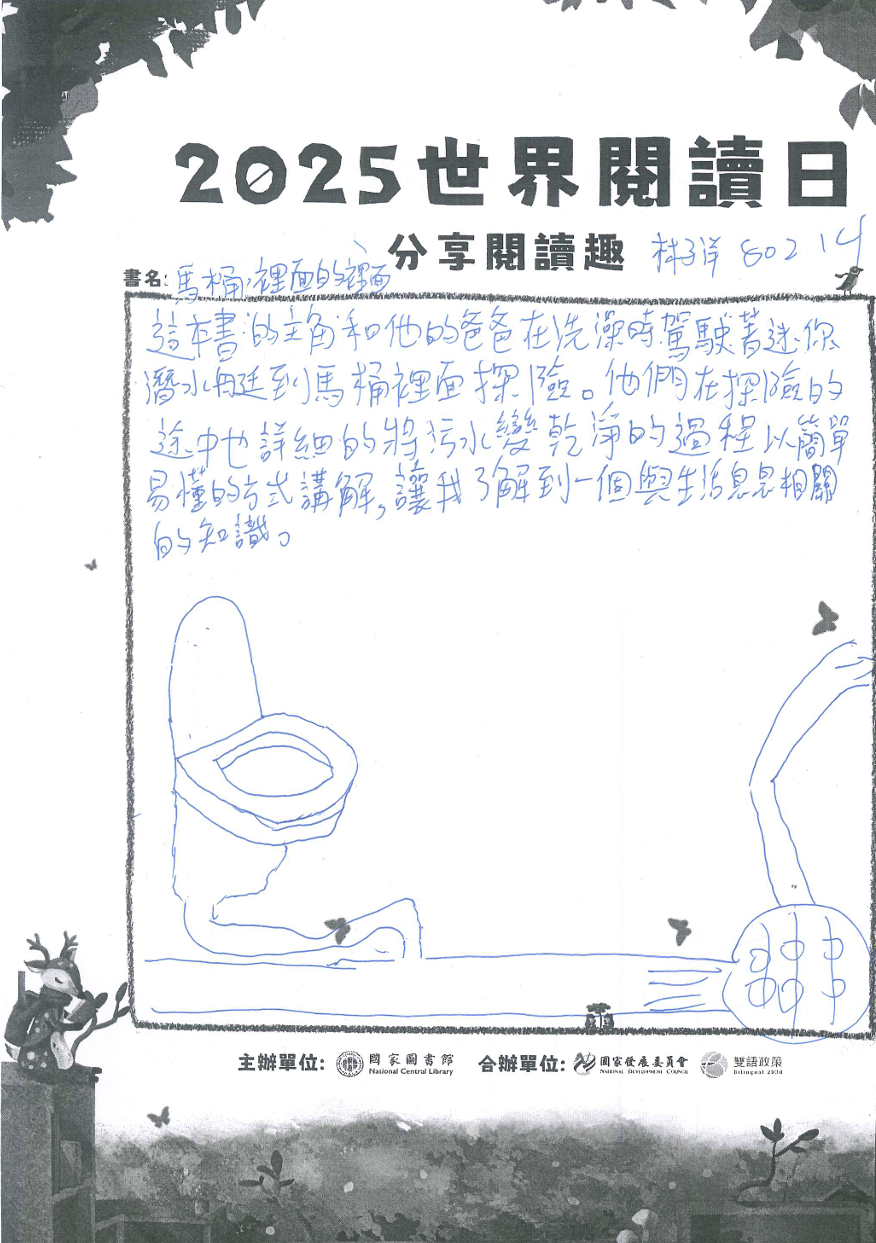 2025世界閱讀日
分享閱讀趣 林子洋 802 14
書名:馬桶裡面的裡面
這本書的主角和他的爸爸在洗澡時駕駛著迷你
潛水艇到馬桶裡面探險。他們在探險的
途中也詳細的將污水變乾淨的過程以簡單
易懂的方式講解,讓我了解到一個與生活息息相關
的知識。
主辦單位: 國家圖書館 合辦單位: 國家發展委員會 雙語政策
National Central Library National Development Council Bilingual 2030